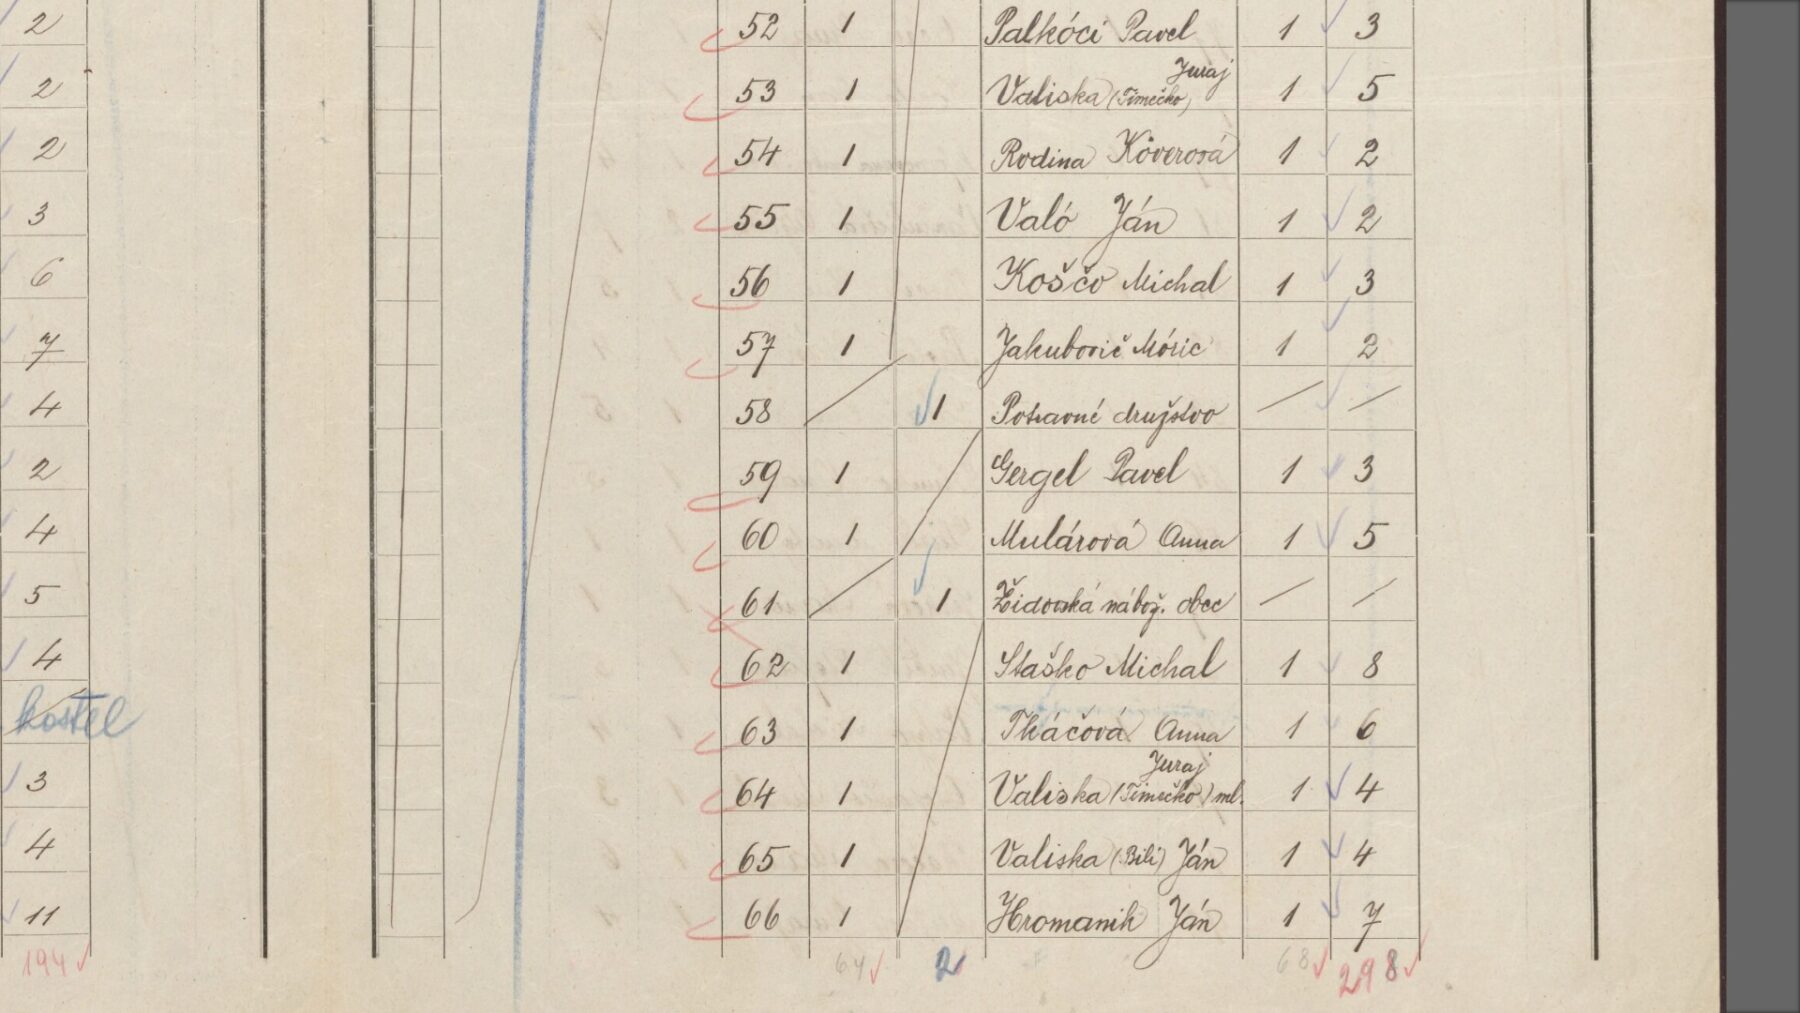 2 52 1 Palkóci Pavel 1 3
2 53 1 Valiska (Timečko) Juraj 1 5
2 54 1 Rodina Köverová 1 2
3 55 1 Való Ján 1 2
6 56 1 Koščo Michal 1 3
7 57 1 Jakubovič Móric 1 2
4 58 / 1 Potravné družstvo / /
2 59 1 Gergel Pavel 1 3
4 60 1 Mulárová Anna 1 5
5 61 / 1 Židovská nábož. obec / /
4 62 1 Staško Michal 1 8
kostel 63 1 Tkáčová Anna 1 6
3 64 1 Valiska (Timečko) Juraj ml. 1 4
4 65 1 Valiska (Bili) Ján 1 4
11 66 1 Hromanik Ján 1 7
194 64 2 68 298